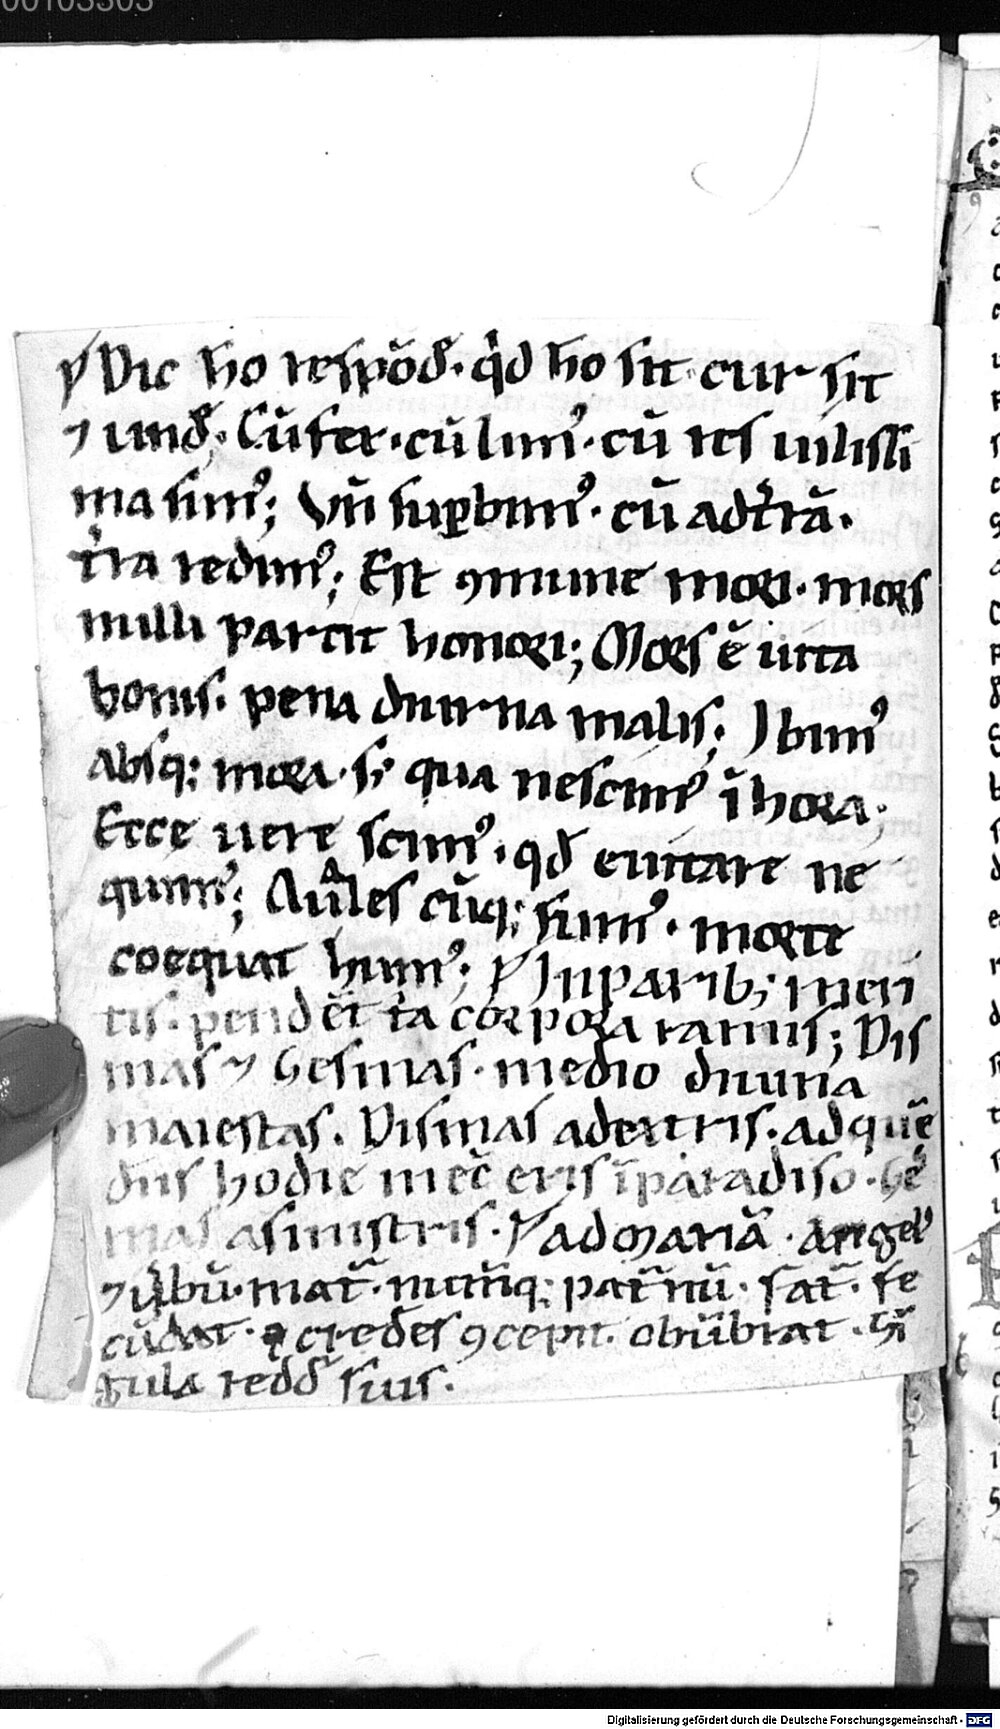 00103503
ꝟ Dic ho̅ respo̅d̅. qͥd ho̅ sit. cur sit
⁊ und̅; Cu̅ fex. cu̅ limꝰ. cu̅ res uilissi
ma simꝰ; Vn̅ suꝑbimꝰ. cu̅ ad t̅ra̅.
t̅ra redimꝰ; Est ꝯmune mori. mors
nulli parcit honori; Mors e̅ uita
bonis. pena diurna malis; Ibimꝰ
absq; mora. s; qua nescimꝰ i̅ hora.
Ecce uere scimꝰ. qd̅ euitare ne
quimꝰ; Aules cu̅q; sumꝰ. morte
coequat humꝰ; ꝟ Inparib; meri
tis. pende̅t t̅a corpora ramis; Dis
mas ⁊ Gesmas. medio diuina
maiestas. Dismas adextris. ad que̅
dn̅s hodie mec̅ eris i̅ paradiso. Ge
mas asinistris. ꝟ ad Maria̅. Angelꝰ
⁊ u̅bu̅. mat̅. nutu̅q; pat̅nu̅. sat̅. fe
cu̅dat. credes ꝯcepit. obu̅brat. si̅
gula redd̅ suis.
Digitalisierung gefördert durch die Deutsche Forschungsgemeinschaft - DFG